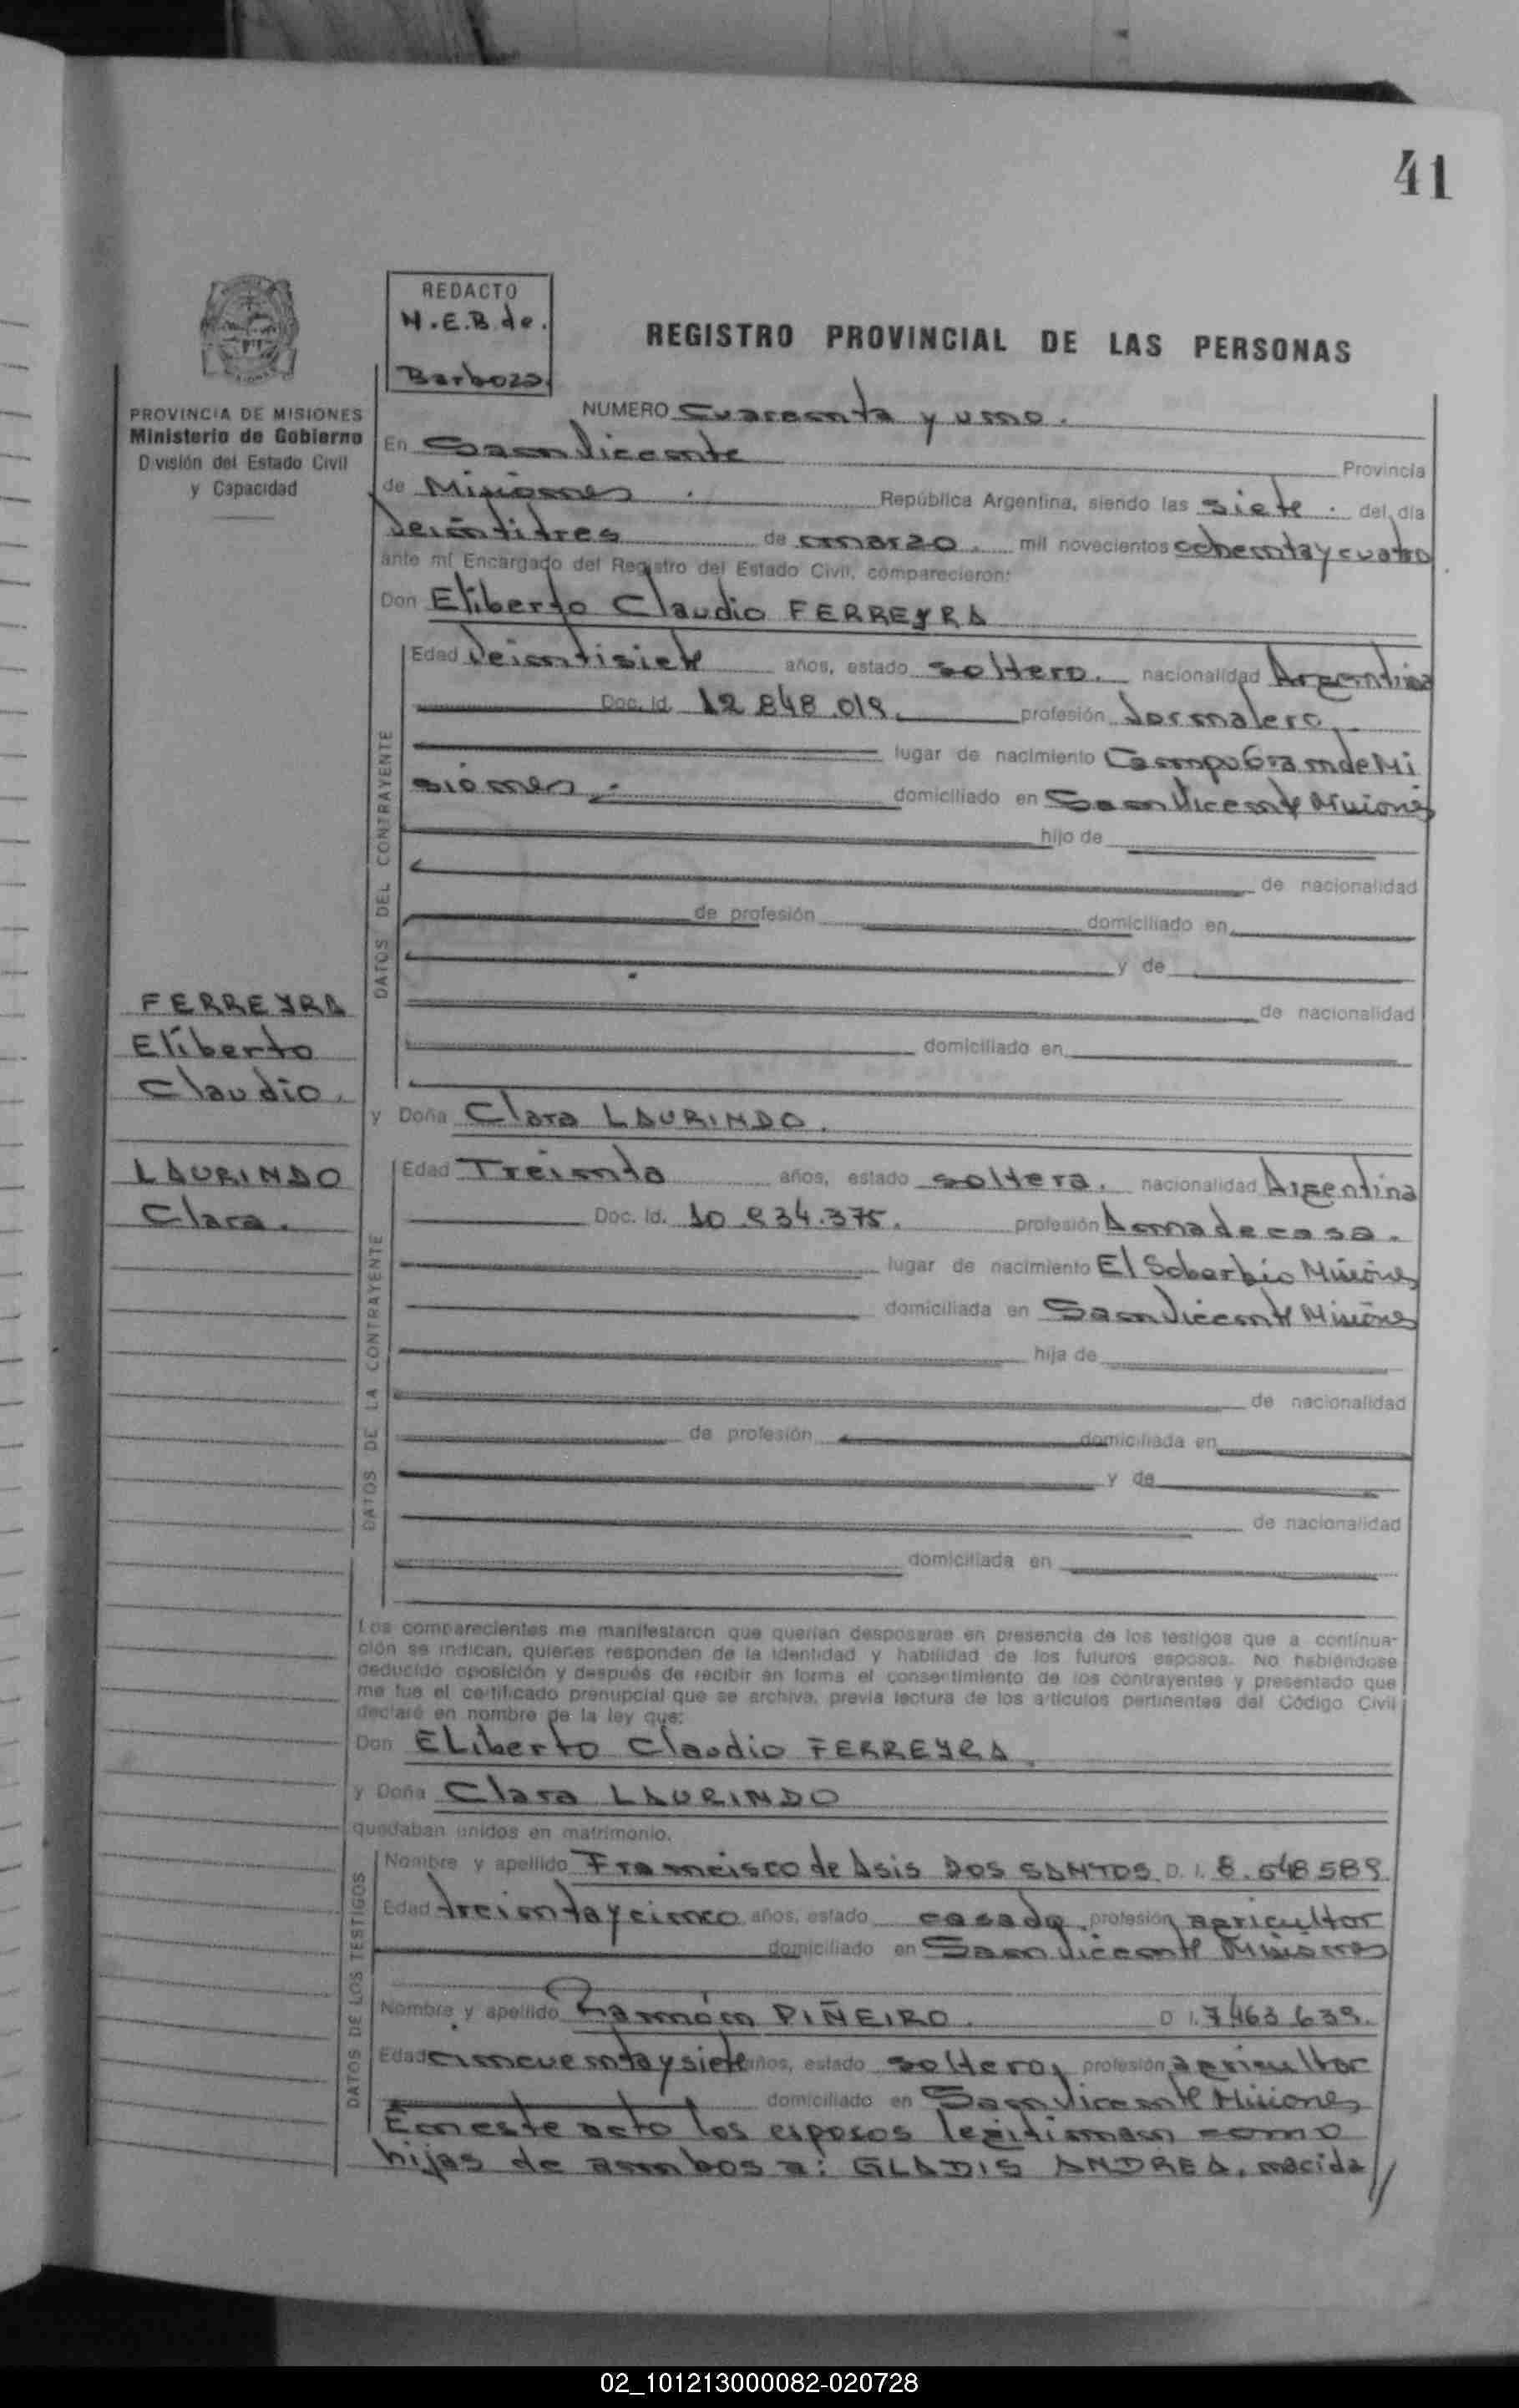 41
REDACTO
N.E.B. de.
Barbozo
REGISTRO PROVINCIAL DE LAS PERSONAS
PROVINCIA DE MISIONES
Ministerio de Gobierno
División del Estado Civil
y Capacidad
NUMERO Cuarenta y uno.
En San Vicente Provincia
de Misiones. República Argentina, siendo las siete. del día
Veintitres de marzo. mil novecientos ochenta y cuatro
ante mí Encargado del Registro del Estado Civil, comparecieron:
Don Eliberto Claudio FERREYRA
Edad Veintisiete años, estado soltero. nacionalidad Argentina
Doc. Id. 12.848.019. profesión Jornalero.
lugar de nacimiento Campo Grande Mi
siones. domiciliado en San Vicente Misiones
hijo de
de nacionalidad
de profesión domiciliado en
y de
de nacionalidad
domiciliado en
DATOS DEL CONTRAYENTE
FERREYRA
Eliberto
Claudio.
y Doña Clara LAURINDO.
LAURINDO
Clara.
Edad Treinta años, estado soltera. nacionalidad Argentina
Doc. Id. 10.934.375. profesión Ama de casa.
lugar de nacimiento El Soberbio Misiones
domiciliada en San Vicente Misiones
hija de
de nacionalidad
de profesión domiciliada en
y de
de nacionalidad
domiciliada en
DATOS DE LA CONTRAYENTE
Los comparecientes me manifestaron que querían desposarse en presencia de los testigos que a continua-
ción se indican, quienes responden de la identidad y habilidad de los futuros esposos. No habiéndose
deducido oposición y después de recibir en forma el consentimiento de los contrayentes y presentado que
me fue el certificado prenupcial que se archiva, previa lectura de los artículos pertinentes del Código Civil
declaré en nombre de la ley que:
Don ELiberto Claudio FERREYRA.
y Doña Clara LAURINDO
quedaban unidos en matrimonio.
Nombre y apellido Francisco de Asis DOS SANTOS D. I. 8.548589.
Edad treinta y cinco años, estado casado, profesión agricultor
domiciliado en San Vicente Misiones
Nombre y apellido Ramón PIÑEIRO. D I. 7.463 639.
Edad cincuenta y siete años, estado soltero, profesión agricultor
domiciliado en San Vicente Misiones
DATOS DE LOS TESTIGOS
En este acto los esposos legitiman como
hijas de ambos a: GLADIS ANDREA, nacida //
02_101213000082-020728